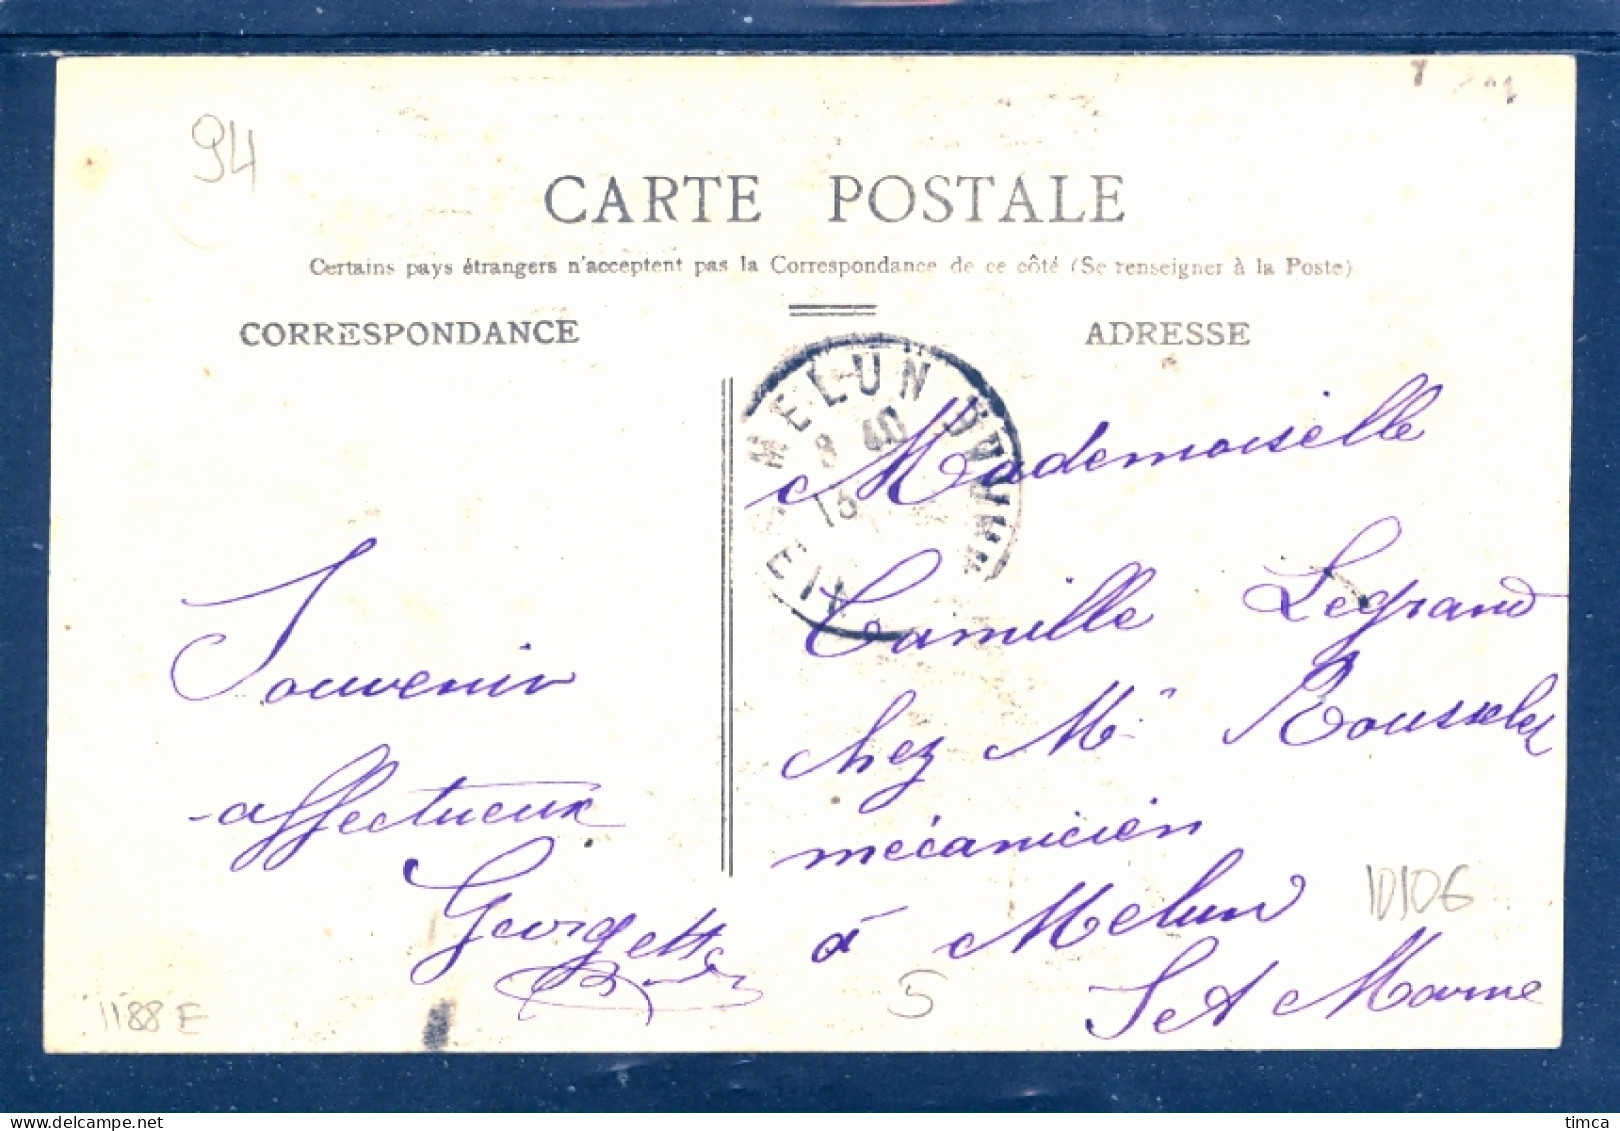 94
CARTE POSTALE
Certains pays étrangers n'acceptent pas la Correspondance de ce côté (Se renseigner à la Poste)
CORRESPONDANCE
ADRESSE
MELUN
8 40
13
Souvenir
affectueux
Georgette
Mademoiselle
Camille Legrand
chez Mr
mécanicien
à Melun
S et Marne
10106
5
1188 E
timca